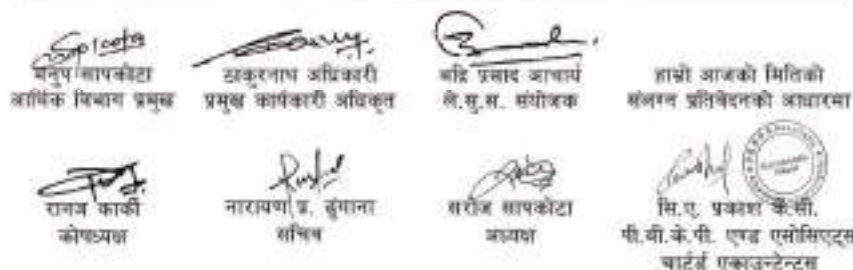 मनुप सापकोटा
आर्थिक विभाग प्रमुख
ठाकुरनाथ अधिकारी
प्रमुख कार्यकारी अधिकृत
बद्रि प्रसाद आचार्य
ले.सु.स. संयोजक
हाम्रो आजको मितिको
संलग्न प्रतिवेदनको आधारमा
कार्की
कोषाध्यक्ष
नारायण प्र. ढुंगाना
सचिव
सरोज सापकोटा
अध्यक्ष
सि.ए. प्रकाश के.सी.
पी.वी.के.पी. एण्ड एसोसिएट्स
चार्टर्ड एकाउन्टेन्टस